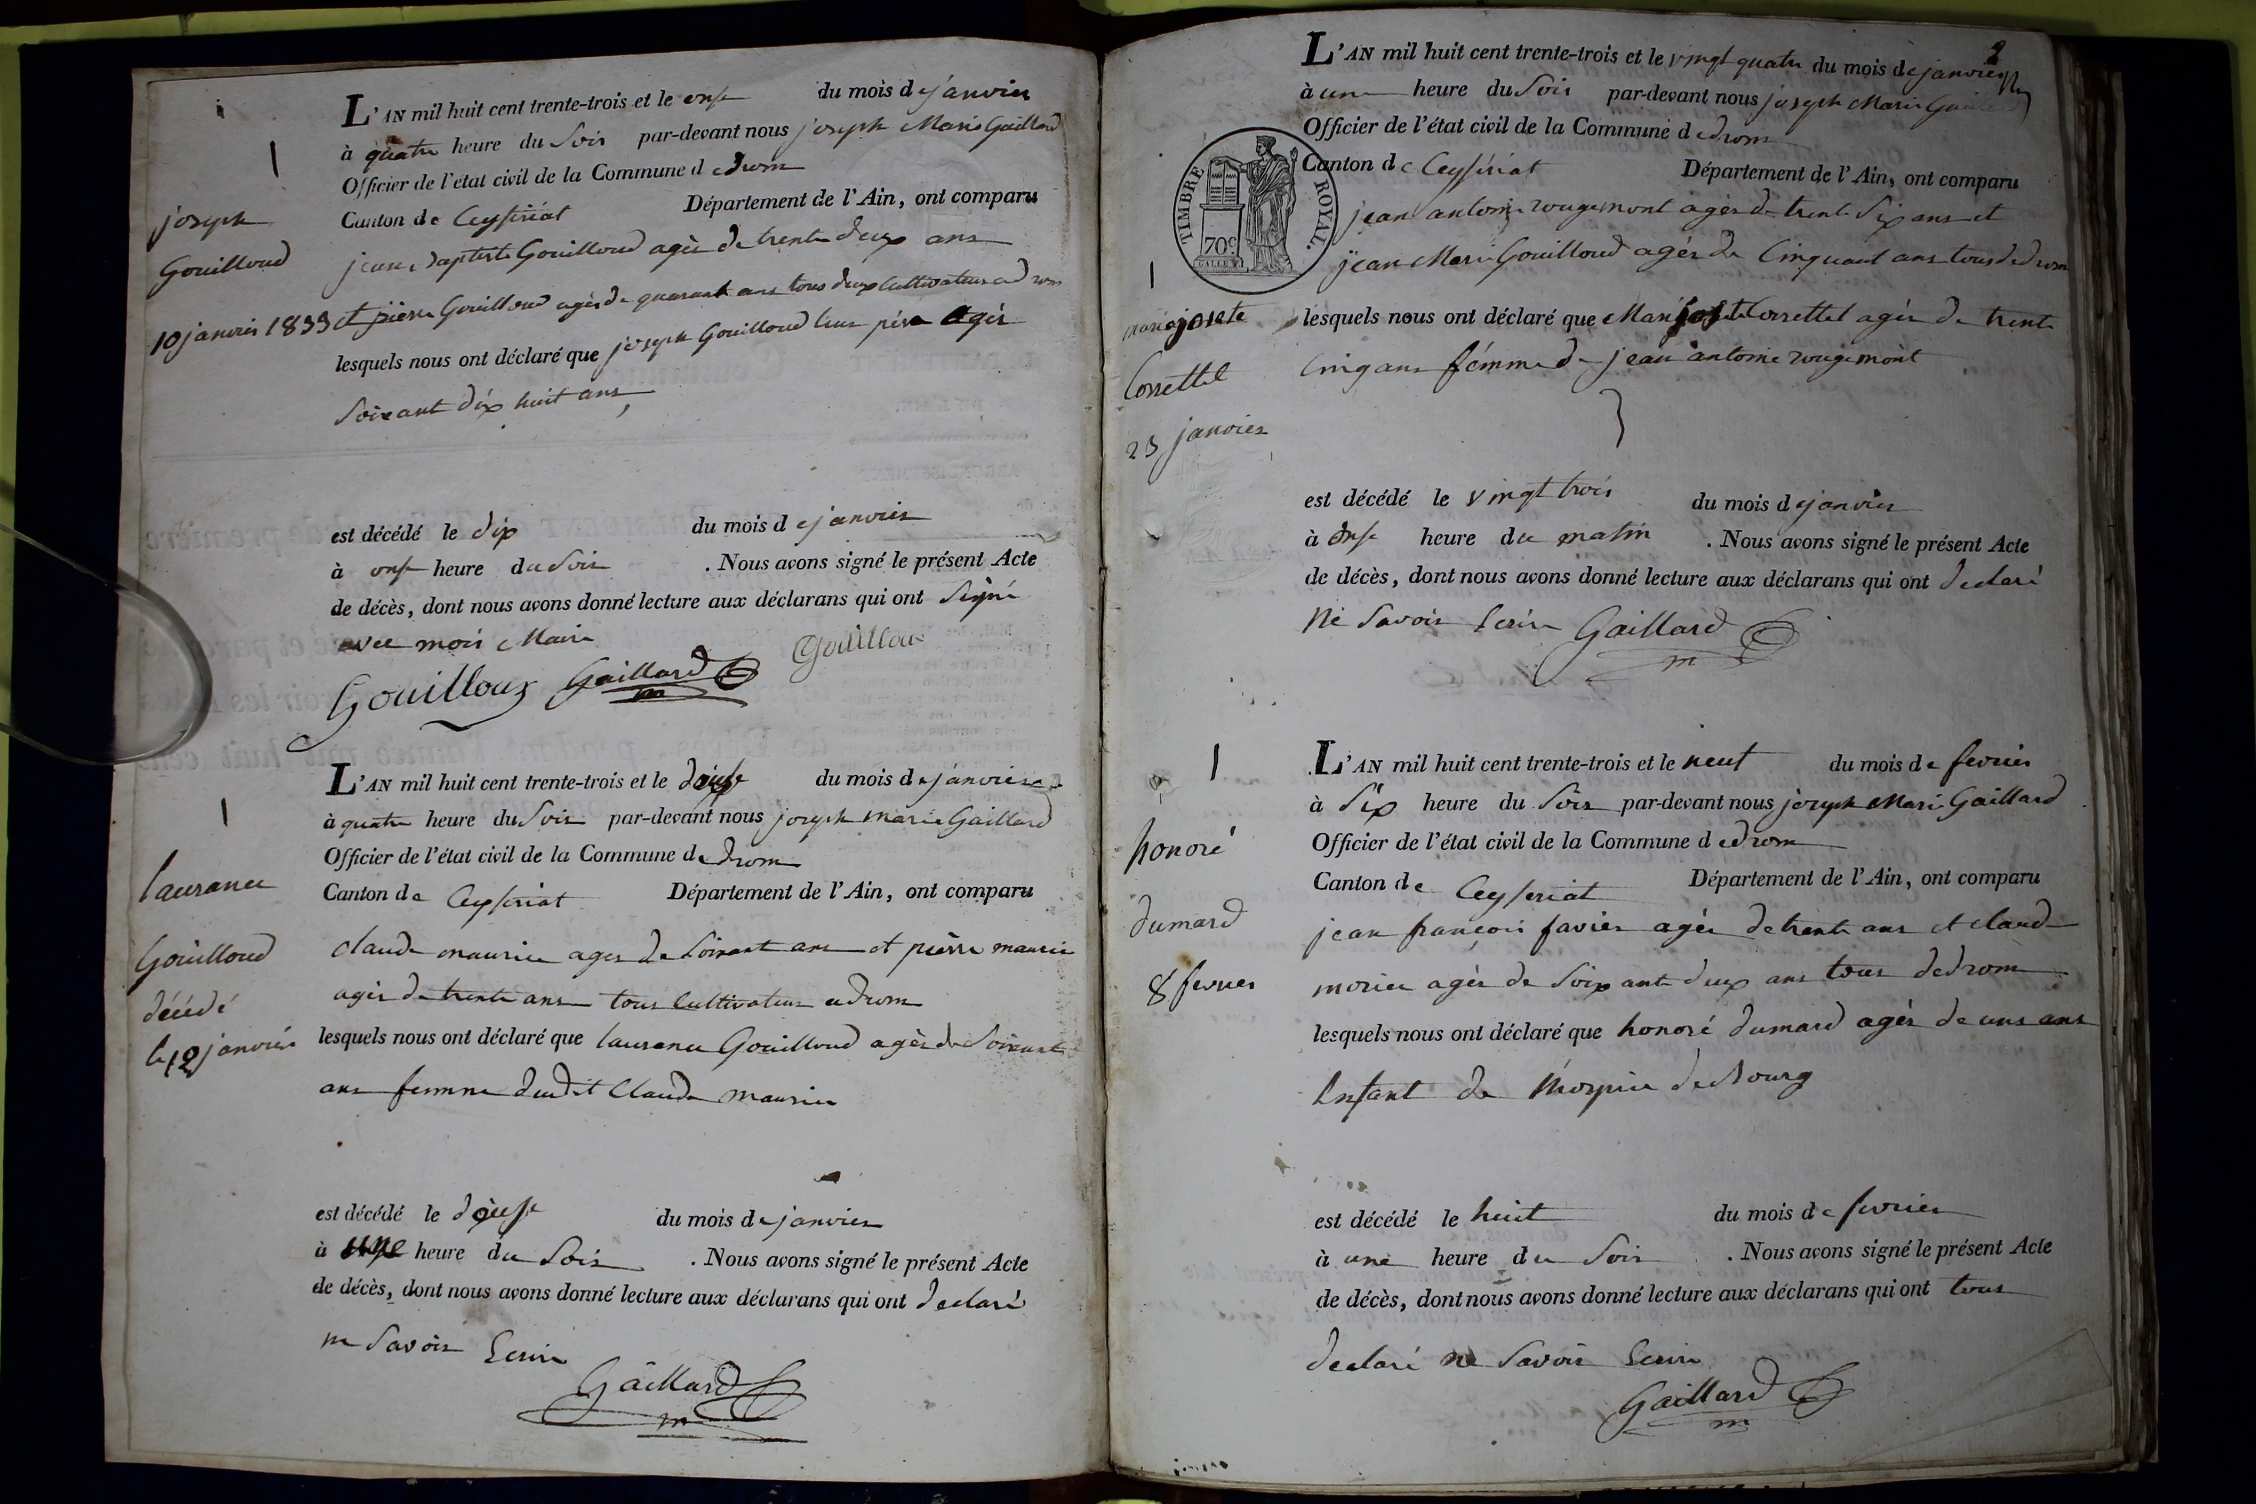 1
joseph
Gouilloud
10 janvier 1833
L'AN mil huit cent trente-trois et le onse du mois de janvier
à quatre heure du Soir par-devant nous joseph Marie Gaillard
Officier de l'état civil de la Commune de drom
Canton de Ceyseriat Département de l'Ain, ont comparu
jean Baptiste Gouilloud agés de trente deux ans
et pièrre Gouilloud agés de quarante ans tous deux Cultivateurs a drom
lesquels nous ont déclaré que joseph Gouilloud leur père Agés
Soixant dix huit ans
est décédé le dix du mois de janvier
à onse heure du Soir . Nous avons signé le présent Acte
de décès, dont nous avons donné lecture aux déclarans qui ont Signé
avec moi Maire
Gouilloux Gaillard m Gouilloud
1
laurance
Gouilloud
décédé
le 12 janvier
L'AN mil huit cent trente-trois et le douse du mois de janvier
à quatre heure du Soir par-devant nous joseph marie Gaillard
Officier de l'état civil de la Commune de drom
Canton de Ceyseriat Département de l'Ain, ont comparu
claude maurice ages de Soixant ans et pièrre maurice
agés de trente ans tous Cultivateur a drom
lesquels nous ont déclaré que laurance Gouilloud agés de Soixant
ans femme dudit Claude maurice
est décédé le douse du mois de janvier
à heure du Soir . Nous avons signé le présent Acte
de décès, dont nous avons donné lecture aux déclarans qui ont declaré
ne Savoir Ecrire
Gaillard
m
2
TIMBRE ROYAL.
70c
1
marie josete
Correttet
23 janvier
L'AN mil huit cent trente-trois et le vingt quatre du mois de janvier
à une heure du Soir par-devant nous joseph Marie Gaillard
Officier de l'état civil de la Commune de drom
Canton de Ceyseriat Département de l'Ain, ont comparu
jean antoine rougemont agés de trente Six ans et
jean Marie Gouilloud agés de Cinquant ans tous de drom
lesquels nous ont déclaré que Marie josete Correttet agés de trente
Cinq ans fémme de jean antoine rougemont
est décédé le vingt trois du mois de janvier
à onse heure du matin . Nous avons signé le présent Acte
de décès, dont nous avons donné lecture aux déclarans qui ont declaré
Ne Savoir Ecrire Gaillard
m
1
honoré
dumard
8 fevrier
L'AN mil huit cent trente-trois et le neuf du mois de fevrier
à Six heure du Soir par-devant nous joseph Marie Gaillard
Officier de l'état civil de la Commune de drom
Canton de Ceyseriat Département de l'Ain, ont comparu
jean françois favier agés de trente ans et claude
morice agés de Soixante deux ans tous de drom
lesquels nous ont déclaré que honoré dumard agés de uns ans
Enfant de l'hospice de Bourg
est décédé le huit du mois de fevrier
à une heure du Soir . Nous avons signé le présent Acte
de décès, dont nous avons donné lecture aux déclarans qui ont tous
declaré ne Savoir Ecrire
Gaillard
m